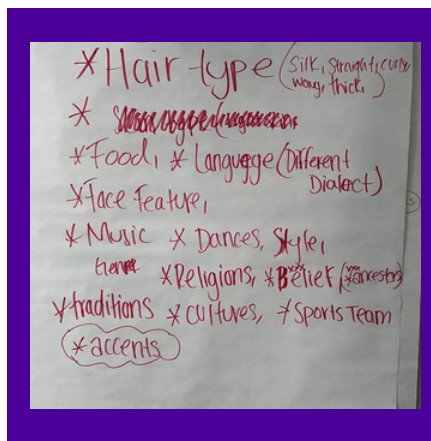 *Hair type (Silk, straight, curly
wavy, thick,)
*
*Food, * Languegge (Different
Dialect)
*Face Feature,
*Music * Dances, Style,
Genre
*Religions, *Belief (ancestors)
*traditions *cultures, *Sports Team
*accents